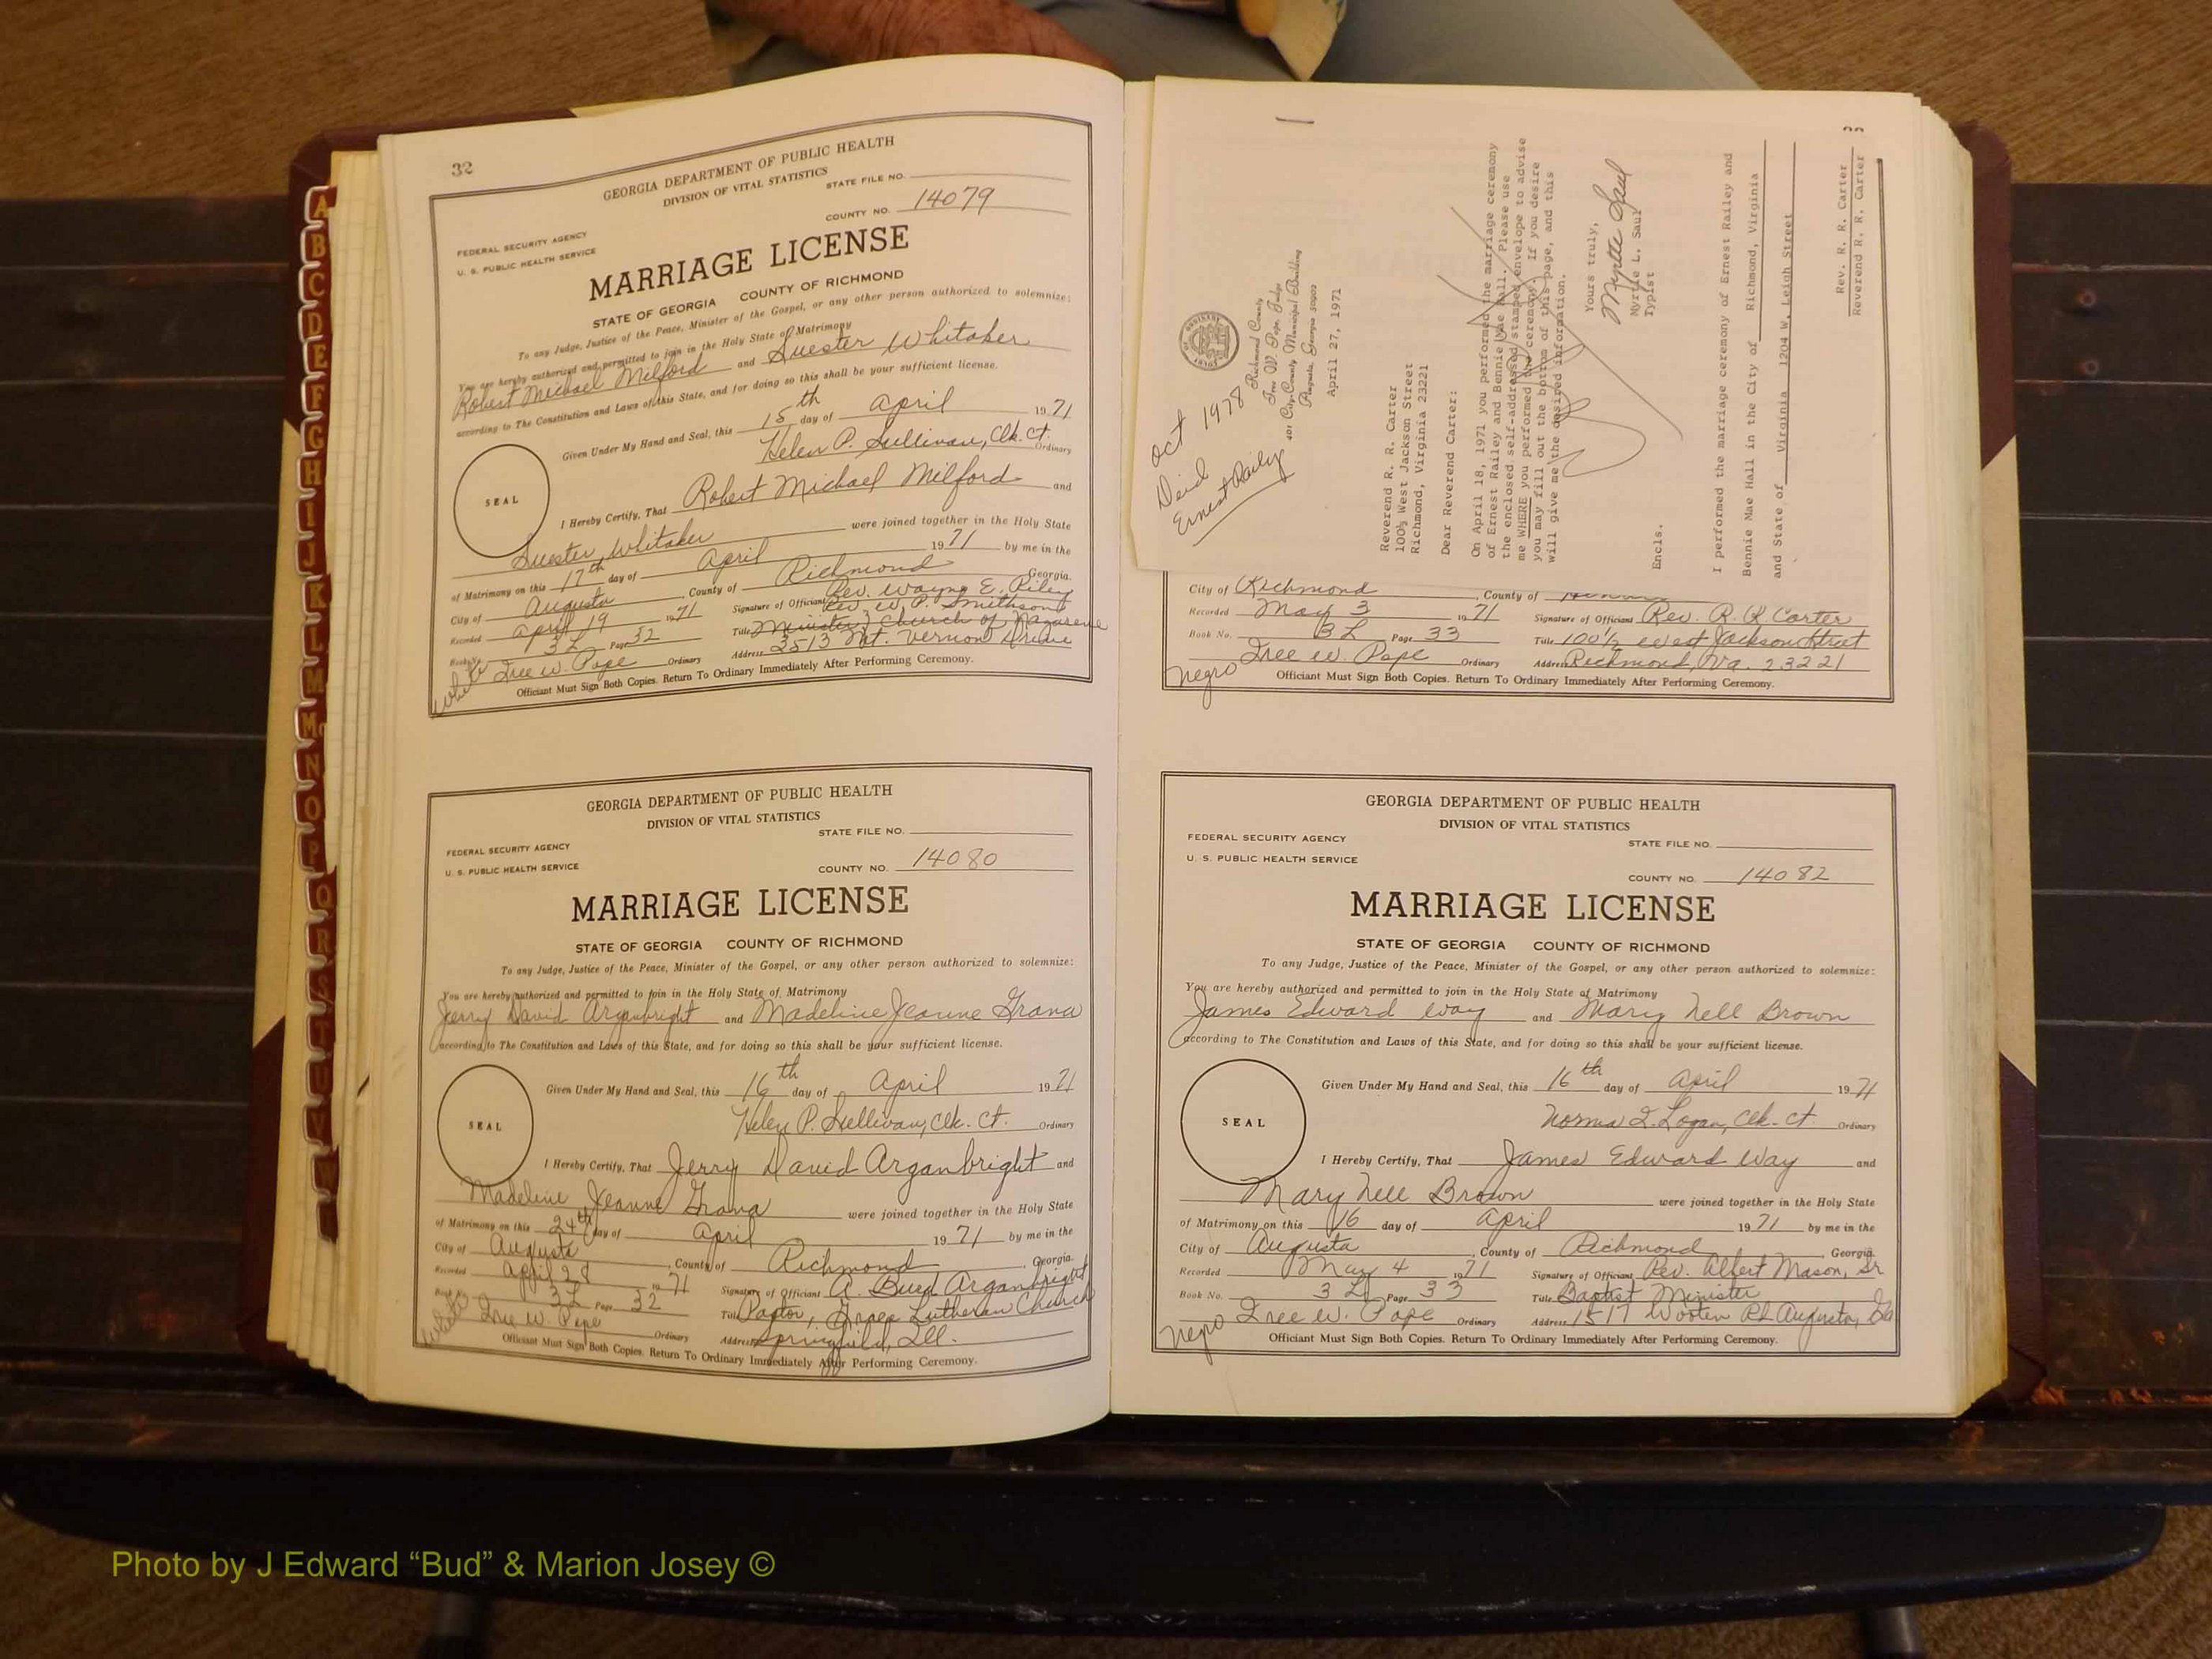 32
GEORGIA DEPARTMENT OF PUBLIC HEALTH
DIVISION OF VITAL STATISTICS
STATE FILE NO.
COUNTY NO. 14079
FEDERAL SECURITY AGENCY
U. S. PUBLIC HEALTH SERVICE
MARRIAGE LICENSE
STATE OF GEORGIA COUNTY OF RICHMOND
To any Judge, Justice of the Peace, Minister of the Gospel, or any other person authorized to solemnize:
You are hereby authorized and permitted to join in the Holy State of Matrimony
Robert Michael Milford and Suester Whitaker
according to The Constitution and Laws of this State, and for doing so this shall be your sufficient license.
Given Under My Hand and Seal, this 15th day of April 1971
Helen P. Sullivan, Clk. Ct. Ordinary
SEAL
I Hereby Certify, That Robert Michael Milford and
Suester Whitaker were joined together in the Holy State
of Matrimony on this 17th day of April 1971 by me in the
City of Augusta, County of Richmond, Georgia.
Recorded April 19 1971 Signature of Officiant Rev. Wayne E. Riley
Rev. W. P. Smithson
Book No. 3L Page 32 Title Minister, Church of Nazarene
Tree W. Pope Ordinary Address 3513 Mt. Vernon Drive
white
Officiant Must Sign Both Copies. Return To Ordinary Immediately After Performing Ceremony.
GEORGIA DEPARTMENT OF PUBLIC HEALTH
DIVISION OF VITAL STATISTICS
FEDERAL SECURITY AGENCY
STATE FILE NO.
U. S. PUBLIC HEALTH SERVICE
COUNTY NO. 14080
MARRIAGE LICENSE
STATE OF GEORGIA COUNTY OF RICHMOND
To any Judge, Justice of the Peace, Minister of the Gospel, or any other person authorized to solemnize:
You are hereby authorized and permitted to join in the Holy State of Matrimony
Jerry David Arganbright and Madeline Jeanne Grana
according to The Constitution and Laws of this State, and for doing so this shall be your sufficient license.
Given Under My Hand and Seal, this 16th day of April 1971
Helen P. Sullivan, Clk. Ct. Ordinary
SEAL
I Hereby Certify, That Jerry David Arganbright and
Madeline Jeanne Grana were joined together in the Holy State
of Matrimony on this 24th day of April 1971 by me in the
City of Augusta, County of Richmond, Georgia.
Recorded April 28 1971 Signature of Officiant A. Burd Arganbright
Book No. 3L Page 32 Title Pastor, Grace Lutheran Church
Tree W. Pope Ordinary Address Springfield, Ill.
white
Officiant Must Sign Both Copies. Return To Ordinary Immediately After Performing Ceremony.
Oct 1978
Deid
Ernest Raily
Richmond County
Tree W. Pope, Judge
401 City-County Municipal Building
Augusta, Georgia 30902
April 27, 1971
Reverend R. R. Carter
100½ West Jackson Street
Richmond, Virginia 23221
Dear Reverend Carter:
On April 18, 1971 you performed the marriage ceremony
of Ernest Railey and Bennie Mae Hall. Please use
the enclosed self-addressed stamped envelope to advise
me WHERE you performed the ceremony. If you desire
you may fill out the bottom of this page, and this
will give me the desired information.
Yours truly,
Myrtle Saul
Myrtle L. Saul
Typist
Encls.
I performed the marriage ceremony of Ernest Railey and
Bennie Mae Hall in the City of Richmond, Virginia
and State of Virginia 1204 W. Leigh Street
Rev. R. R. Carter
Reverend R. R. Carter
City of Richmond, County of
Recorded May 3 1971 Signature of Officiant Rev. R. R Carter
Book No. 3L Page 33 Title 100½ West Jackson Street
Tree W. Pope Ordinary Address Richmond, Va. 23221
Negro
Officiant Must Sign Both Copies. Return To Ordinary Immediately After Performing Ceremony.
GEORGIA DEPARTMENT OF PUBLIC HEALTH
DIVISION OF VITAL STATISTICS
FEDERAL SECURITY AGENCY
STATE FILE NO.
U. S. PUBLIC HEALTH SERVICE
COUNTY NO. 14082
MARRIAGE LICENSE
STATE OF GEORGIA COUNTY OF RICHMOND
To any Judge, Justice of the Peace, Minister of the Gospel, or any other person authorized to solemnize:
You are hereby authorized and permitted to join in the Holy State of Matrimony
James Edward Way and Mary Nell Brown
according to The Constitution and Laws of this State, and for doing so this shall be your sufficient license.
Given Under My Hand and Seal, this 16th day of April 1971
Norma I. Logan, Clk. Ct. Ordinary
SEAL
I Hereby Certify, That James Edward Way and
Mary Nell Brown were joined together in the Holy State
of Matrimony on this 16 day of April 1971 by me in the
City of Augusta, County of Richmond, Georgia.
Recorded May 4 1971 Signature of Officiant Rev. Albert Mason, Sr
Book No. 3L Page 33 Title Baptist Minister
Tree W. Pope Ordinary Address 1517 Wooten Rd. Augusta, Ga
Negro
Officiant Must Sign Both Copies. Return To Ordinary Immediately After Performing Ceremony.
A
B
C
D
E
F
G
H
I
J
K
L
M
Mc
N
O
P
Q
R
S
T
U
V
W
Photo by J Edward “Bud” & Marion Josey ©